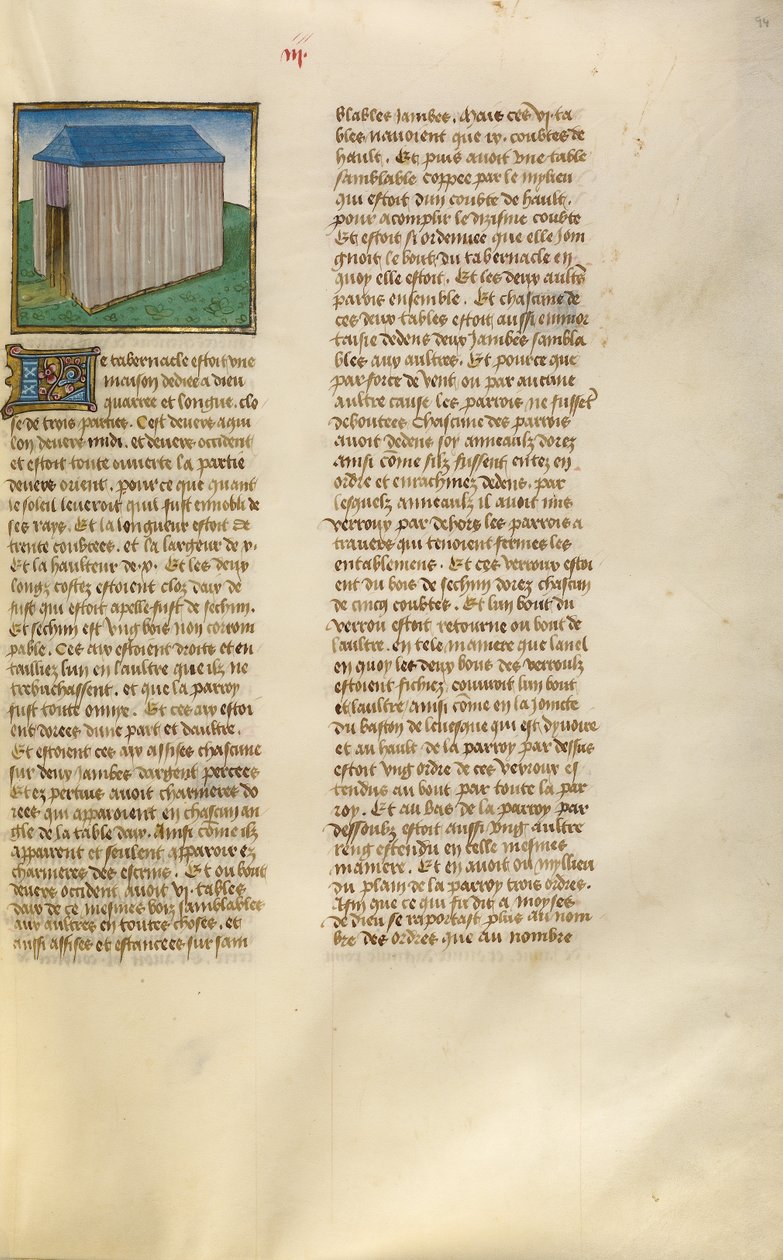 94
iij.
Le tabernacle estoit vne
maison dediee a dieu
quarree et longue. clo
se de trois parties. Cest devers aqui
lon devers midi. et devers occident
et estoit toute ouverte la partie
devers orient. pour ce que quant
le soleil leveroit quil fust ennobli de
ses rays. Et la longueur estoit de
trente coubtees. et la largeur de x.
Et la haulteur de .x. Et les deux
longz costez estoient cloz daix de
fust qui estoit apelle fust de sechim.
Et sechim est vng bois non corrom
pable. Ces aix estoient droits et en
tailliez lun en laultre que ilz ne
trebuchassent. et que la parroy
fust toute onnye. Et ces aix estoi
ent dorees dune part et daultre.
Et estoient ces aix assises chascune
sur deux jambes dargent percees
Et ez pertuis avoit charnieres do
rees qui apparoient en chascun an
gle de la table daix. Ainsi come ilz
apparent et seulent apparoir ez
charnieres des escrins. Et ou bout
devers occident avoit vi. tables
daix de ce mesmes bois samblables
aux aultres en toutes choses. et
aussi assises et estancees sur sam
blables jambes. Mais ces vi. ta
bles navoient que ix. coubtes de
hault. Et puis avoit vne table
samblable coppee par le mylieu
qui estoit dun coubte de hault.
pour acomplir le dizisme coubte
Et estoit si ordenuee que elle join
gnoit le bout du tabernacle en
quoy elle estoit. Et les deux aults
parois ensemble. Et chascune de
ces deux tables estoit aussi enmor
taisie dedens deux jambes sambla
bles aux aultres. Et pource que
par force de vent ou par aucune
aultre cause les parrois ne fussent
deboutees Chascune des parrois
avoit dedens soy anneaulz dorez
ainsi come silz fussent entez en
ordre et enrachinez dedens. par
lesquelz anneaulz il avoit mis
verroux par dehors les parrois a
travers qui tenoient fermes les
entablemens. Et ces verroux estoi
ent du bois de sechim dorez chascun
de cincq coubtes. Et lun bout du
verrou estoit retourne ou bout de
laultre. en tele maniere que lanel
en quoy les deux bous des verroulz
estoient fichiez couvroit lun bout
et laultre ainsi come en la joincte
du baston de levesque qui est dyvoire
et au hault de la parroy par dessus
estoit vng ordre de ces verroux es
tendus au bout par toute la par
roy. Et au bas de la parroy par
dessoubz estoit aussi vng aultre
reng estendu en celle mesmes
maniere. Et en avoit ou myllieu
du plain de la parroy trois ordres.
Afin que ce qui fu dit a moyses
de dieu se raportast plus au nom
bre des ordres que au nombre